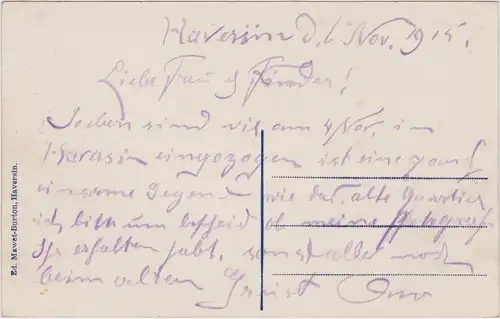 Haversin d. 6 Nov. 1915.
Liebe Frau & Kinder!
Soeben sind wir am 4 Nov. in
Havrasin eingezogen ist eine ganz
einsame Gegend wie das alte Quartier
ich bitt um bescheid ob meine Photograf
Ihr erhalten habt, sonst alles noch
beim alten Grüist Omo
Ed. Mawet-Burton, Haversin.